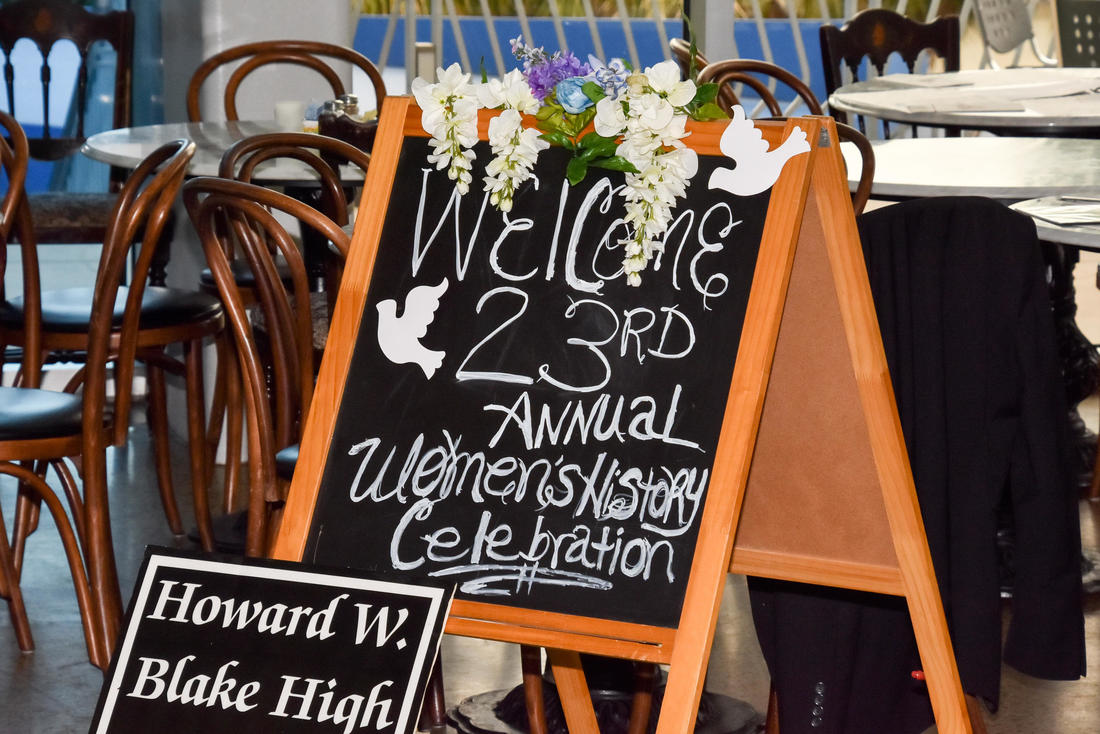 Welcome
23RD
Annual
Women's History
Celebration
Howard W.
Blake High